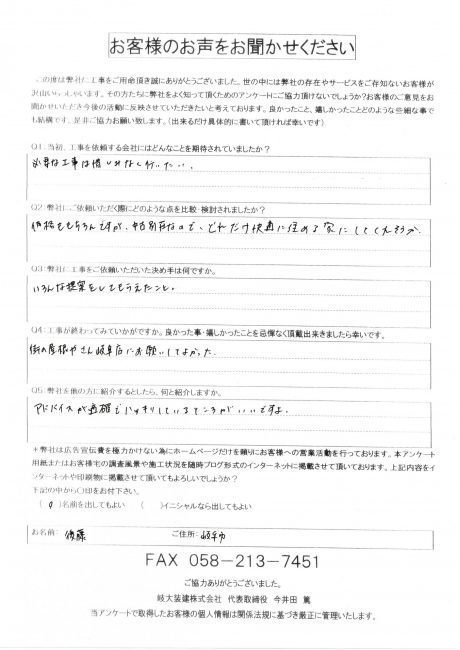 お客様のお声をお聞かせください
この度は弊社に工事をご用命頂き誠にありがとうございました。世の中には弊社の存在やサービスをご存知ないお客様が
沢山いらっしゃいます。その方たちに弊社をよく知って頂くためのアンケートにご協力頂けないでしょうか？お客様のご意見をお
聞かせいただき今後の活動に反映させていただきたいと考えております。良かったこと、嬉しかったことどのような些細な事で
も結構です、是非ご協力お願い致します。（出来るだけ具体的に書いて頂ければ幸いです）
Q1:当初、工事を依頼する会社にはどんなことを期待されていましたか？
必要な工事は惜いれなく行いたい。
Q2:弊社にご依頼いただく際にどのような点を比較・検討されましたか？
価格ももちろんですが、中古別荘なので、どれだけ快適に住める家にしてくれるか
Q3:弊社に工事をご依頼いただいた決め手は何ですか。
いろんな提案をしてもらえたこと。
Q4:工事が終わってみていかがですか。良かった事・嬉しかったことを忌憚なく頂戴出来きましたら幸いです。
街の屋根やさん岐阜店にお願いしてよかった
Q5:弊社を他の方に紹介するとしたら、何と紹介しますか。
アドバイスが適確ではっきりしているところがいいですよ。
＊弊社は広告宣伝費を極力かけない為にホームページだけを頼りにお客様への営業活動を行っております。本アンケート
用紙またはお客様宅の調査風景や施工状況を随時ブログ形式のインターネットに掲載させて頂いております。上記内容をイ
ンターネットや印刷物に掲載させて頂いてもよろしいでしょうか？
下記の中から〇印をお付下さい。
（〇）名前を出してもよい　（　）イニシャルなら出してもよい
お名前： 後藤　ご住所： 岐阜市
FAX 058-213-7451
ご協力ありがとうございました。
岐大装建株式会社 代表取締役 今井田 篤
当アンケートで取得したお客様の個人情報は関係法規に基づき厳正に管理いたします。